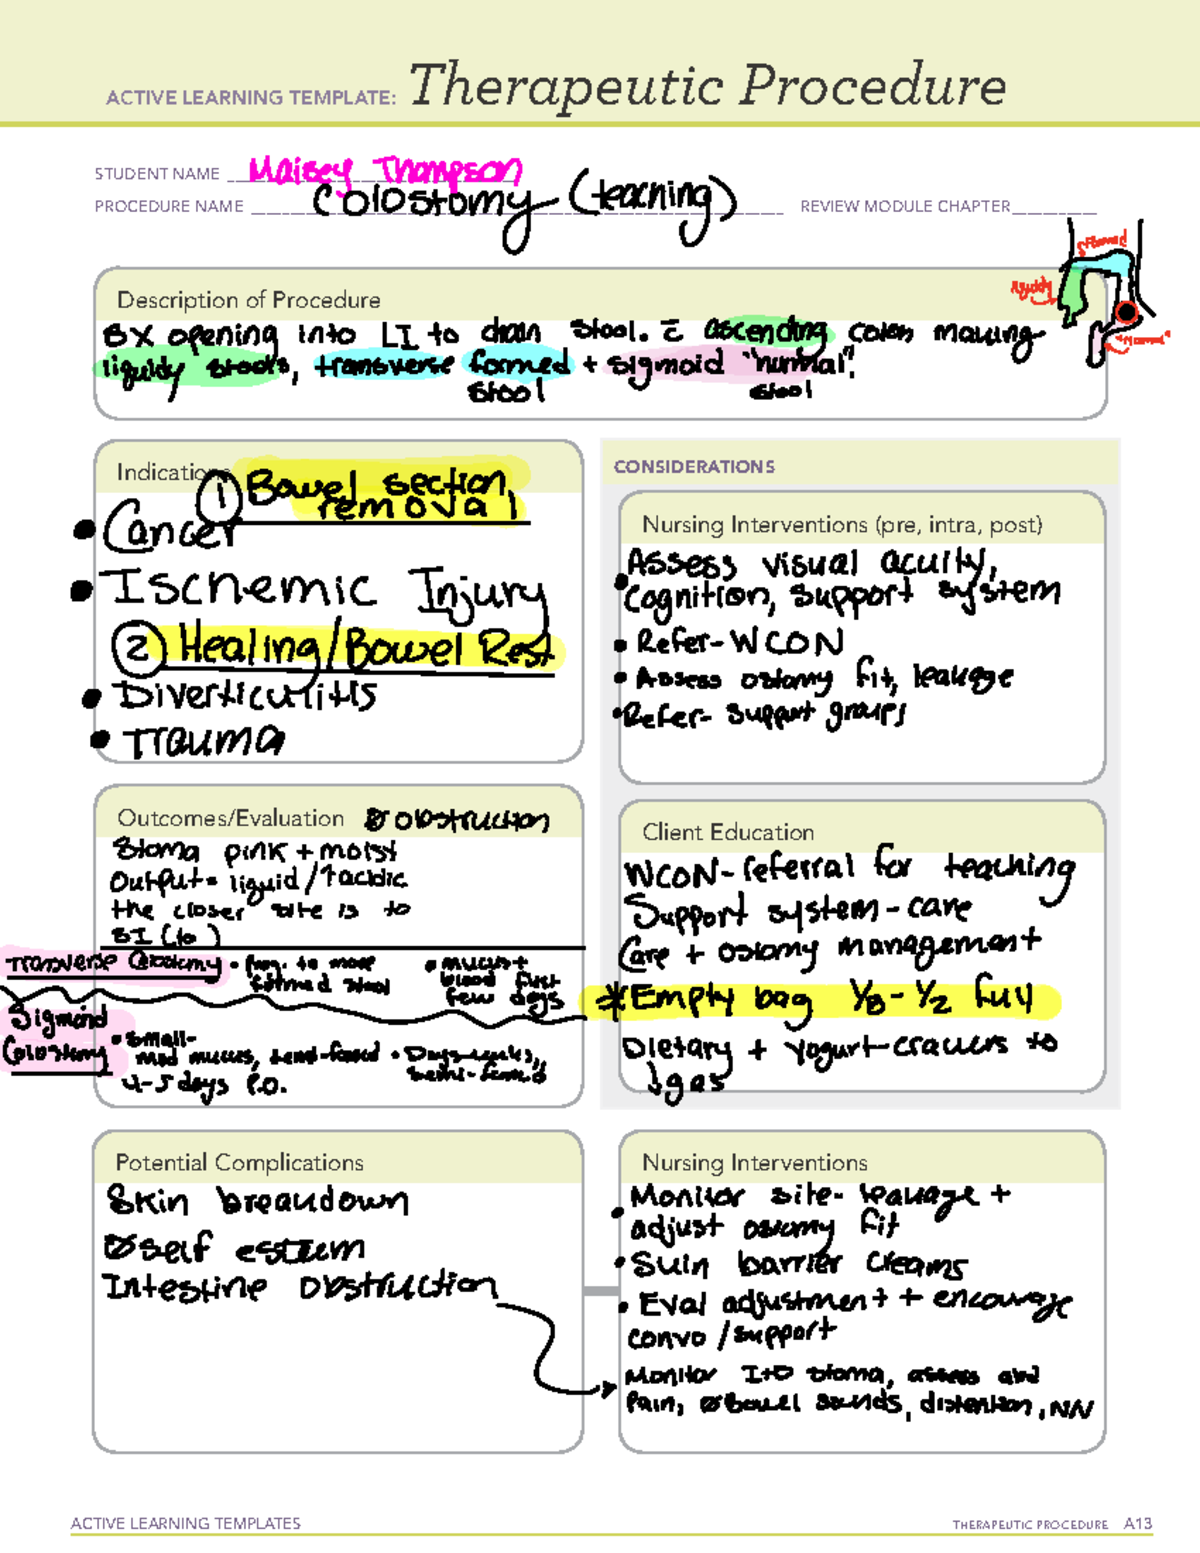 ACTIVE LEARNING TEMPLATE: Therapeutic Procedure
STUDENT NAME Maisey Thompson
PROCEDURE NAME Colostomy (teaching) REVIEW MODULE CHAPTER
formed
liquidy
"Normal"
Description of Procedure
SX opening into LI to drain stool. c̄ ascending colon making
liquidy stools, transverse formed + sigmoid "normal".
stool stool
Indications
① Bowel section
removal
• Cancer
• Ischemic Injury
② Healing/Bowel Rest
• Diverticulitis
• Trauma
CONSIDERATIONS
Nursing Interventions (pre, intra, post)
• Assess visual acuity,
cognition, support system
• Refer-WCON
• Assess ostomy fit, leakage
• Refer- support groups
Outcomes/Evaluation Ø obstruction
Stoma pink + moist
Output= liquid/↑acidic
the closer site is to
SI (to )
Transverse Colostomy • Prog. to more
formed stool
• mucus+
blood first
few days
Sigmoid
Colostomy
• Small-
mod mucus, semi-formed
4-5 days P.O.
• Days-weeks,
semi-formed
Client Education
WCON-referral for teaching
Support system-care
Care + ostomy management
*Empty bag ⅓-½ full
Dietary + yogurt-crackers to
↓gas
Potential Complications
Skin breakdown
Øself esteem
Intestine obstruction
Nursing Interventions
• Monitor site- leakage +
adjust ostomy fit
• Skin barrier creams
• Eval adjustment + encourage
convo/support
Monitor I+O stoma, assess abd
pain, Øbowel sounds, distention, N/V
ACTIVE LEARNING TEMPLATES
THERAPEUTIC PROCEDURE A13